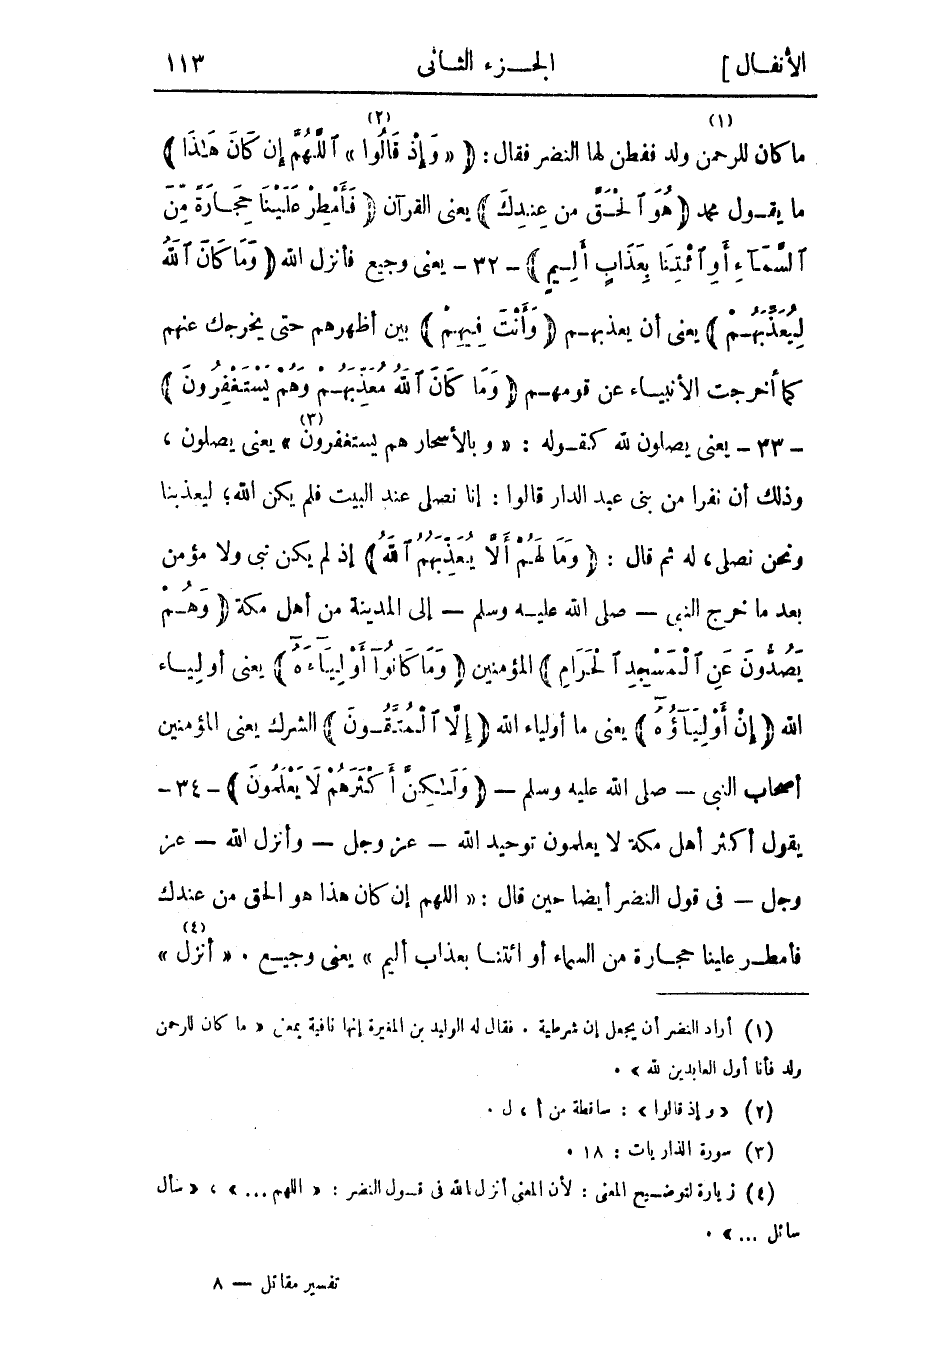 الأنفال ] الجزء الثانى ١١٣
ما كان للرحمن ولد ففطن لها النضر فقال : (١) ﴿ « وَإِذْ قَالُوا » (٢) ٱللَّهُمَّ إِن كَانَ هَٰذَا ﴾
ما يقول محمد ﴿ هُوَ ٱلْحَقَّ مِن عِندِكَ ﴾ يعنى القرآن ﴿ فَأَمْطِرْ عَلَيْنَا حِجَارَةً مِّنَ
ٱلسَّمَآءِ أَوِ ٱئْتِنَا بِعَذَابٍ أَلِيمٍ ﴾ - ٣٢ - يعنى وجيع فأنزل الله ﴿ وَمَا كَانَ ٱللَّهُ
لِيُعَذِّبَهُمْ ﴾ يعنى أن يعذبهم ﴿ وَأَنْتَ فِيهِمْ ﴾ بين أظهرهم حتى يخرجك عنهم
كما أخرجت الأنبياء عن قومهم ﴿ وَمَا كَانَ ٱللَّهُ مُعَذِّبَهُمْ وَهُمْ يَسْتَغْفِرُونَ ﴾
- ٣٣ - يعنى يصلون لله كقوله : « و بالأسحار هم يستغفرون (٣) » يعنى يصلون ،
وذلك أن نفرا من بنى عبد الدار قالوا : إنا نصلى عند البيت فلم يكن الله؛ ليعذبنا
ونحن نصلى، له ثم قال : ﴿ وَمَا لَهُمْ أَلَّا يُعَذِّبَهُمُ ٱللَّهُ ﴾ إذ لم يكن نبى ولا مؤمن
بعد ما خرج النبى — صلى الله عليه وسلم — إلى المدينة من أهل مكة ﴿ وَهُمْ
يَصُدُّونَ عَنِ ٱلْمَسْجِدِ ٱلْحَرَامِ ﴾ المؤمنين ﴿ وَمَا كَانُوٓا أَوْلِيَآءَهُ ﴾ يعنى أولياء
الله ﴿ إِنْ أَوْلِيَآؤُهُ ﴾ يعنى ما أولياء الله ﴿ إِلَّا ٱلْمُتَّقُونَ ﴾ الشرك يعنى المؤمنين
أصحاب النبى — صلى الله عليه وسلم — ﴿ وَلَٰكِنَّ أَكْثَرَهُمْ لَا يَعْلَمُونَ ﴾ - ٣٤ -
يقول أكثر أهل مكة لا يعلمون توحيد الله — عز وجل — وأنزل الله — عز
وجل — فى قول النضر أيضا حين قال : « اللهم إن كان هذا هو الحق من عندك
فأمطر علينا حجارة من السماء أو ائتنا بعذاب أليم » يعنى وجيع . « أنزل (٤) »
(١) أراد النضر أن يجعل إن شرطية . فقال له الوليد بن المغيرة إنها نافية بمعنى « ما كان للرحمن
ولد فأنا أول العابدين لله » .
(٢) « وإذ قالوا » : ساقطة من أ ، ل .
(٣) سورة الذاريات : ١٨ .
(٤) زيارة لتوضيح المعنى : لأن المعنى أنزل الله فى قول النضر : « اللهم ... » ، « سأل
سائل ... » .
تفسير مقاتل — ٨